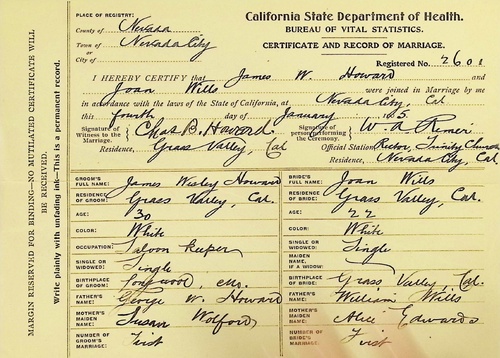 California State Department of Health.
BUREAU OF VITAL STATISTICS.
CERTIFICATE AND RECORD OF MARRIAGE.
PLACE OF REGISTRY:
County of Nevada
Town of Nevada City
or
City of
Registered No. 2601
I HEREBY CERTIFY that James W. Howard and
Joan Wills were joined in Marriage by me
in accordance with the laws of the State of California, at Nevada City, Cal
this fourth day of January
Signature of Witness to the Marriage. Chas B. Howard Signature of person performing the Ceremony. W. A.
Residence, Grass Valley, Cal Official Station, Rector, Trinity Church
Residence, Nevada City, Cal
GROOM'S FULL NAME: James Wesley Howard
RESIDENCE OF GROOM: Grass Valley, Cal.
AGE: 30
COLOR: White
OCCUPATION: Saloon keeper
SINGLE OR WIDOWED: Single
BIRTHPLACE OF GROOM: Longwood, Mo.
FATHER'S NAME: George W. Howard
MOTHER'S MAIDEN NAME: Susan Wolford
NUMBER OF GROOM'S MARRIAGE: First
BRIDE'S FULL NAME: Joan Wills
RESIDENCE OF BRIDE: Grass Valley, Cal.
AGE: 22
COLOR: White
SINGLE OR WIDOWED: Single
MAIDEN NAME, IF A WIDOW:
BIRTHPLACE OF BRIDE: Grass Valley, Cal.
FATHER'S NAME: William Wills
MOTHER'S MAIDEN NAME: Alice Edwards
NUMBER OF BRIDE'S MARRIAGE: First
MARGIN RESERVED FOR BINDING—NO MUTILATED CERTIFICATE WILL
BE RECEIVED.
Write plainly with unfading ink—This is a permanent record.